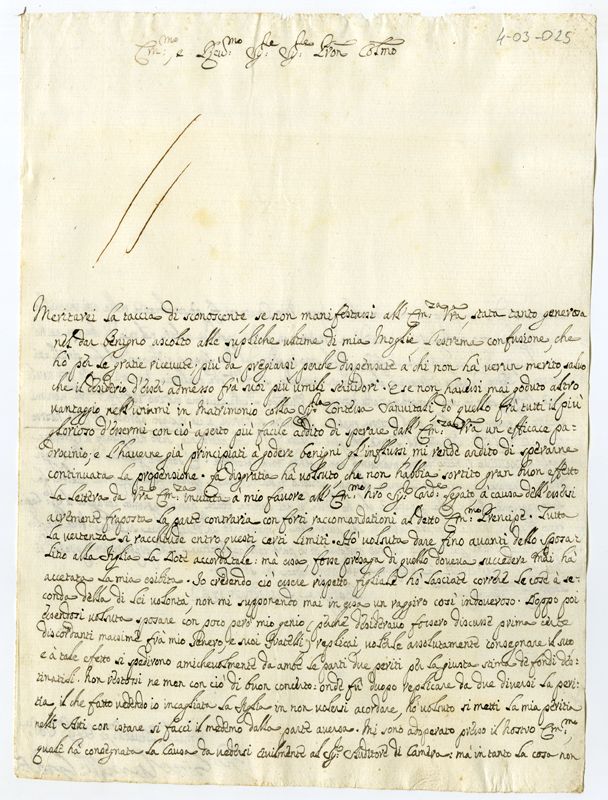 4-03-025
Em.mo, e Ren.mo Sig.re Sig.re Pron Col.mo
Meritarei la taccia di sconoscente, se non manifestassi all' Em.za Vra, stata tanto generosa
nel dar benigno ascolto alle supliche ultime di mia Moglie l'estrema confusione, che
hò per le gratie ricevute, più da pregiarsi perche dispensate a chi non hà verun merito, salvo
che il desiderio d'esser admesso frà suoi più umili servidori. E se non havessi mai poduto altro
vantaggio nell'unirmi in Matrimonio colla Sig.ra Contessa Sanvitali dò quello frà tutti il più
glorioso d'essermi con ciò aperto più facile addito di sperare dall' Em.za Vra un efficace pa=
drocinio; e l'haverne già principiati à godere benigni gl'influssi mi rende ardito di sperarne
continuata la propensione. La disgratia hà voluto, che non habbia sortito gran buon effetto
la lettera da Vra Em.za inviata a mio favore all' Em.mo nro Sig.r Card. Legato a causa dell'essersi
acremente fraposta la parte contraria con forti raccomandationi al detto Em.mo Prencipe. Tutta
la vertenza si racchiude entro questi certi limiti. Hò voluto dare fino avanti dello sposa=
litio alla Figlia la Dote accordatale: mà essa forse presaga di quello doveva succedere mai hà
accetata la mia esibita. Io credendo ciò essere rispetto figliale hò lasciate correre le cose à se=
conda della di Lei volontà, non mi supponendo mai in essa un raggiro così indoveroso. Doppo poi
essendosi voluta sposare con poco però mio genio, poiche desideravo fossero discusse prima certe
discordanti massime frà mio Genero, e suoi Fratelli, replicai volerle assolutamente consegnare il suo
e à tale effetto si spedirono amichevolmente da ambe le parti due periti per la giusta stima de fondi des=
tinatisi. Non restorsi ne men con ciò di buon concerto: onde fù duopo replicare da due diversi la peri=
tia, il che fatto vedendo io incagliata la Figlia in non volersi acordare, hò voluto si metti la mia peritia
nelli Atti con istare si facci il medemo dalla parte aversa. Mi sono adoperato presso il Nostro Em.mo
quale hà consegnata la Causa da vedersi civilmente al Sig.r Auditore di Camera: mà in tanto la cosa non